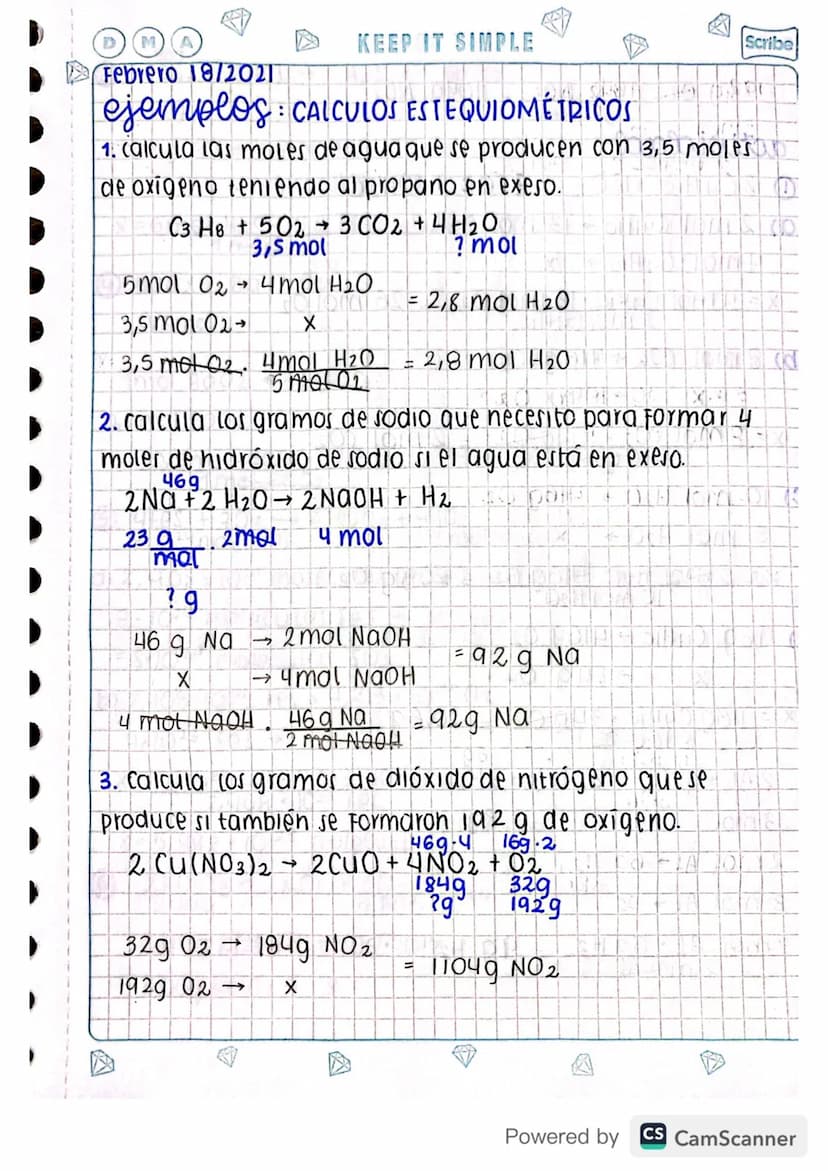 D M A
KEEP IT SIMPLE
Scribe
Febrero 18/2021
ejemplos: CALCULOS ESTEQUIOMÉTRICOS
1. Calcula las moles de agua que se producen con 3,5 moles
de oxígeno teniendo al propano en exeso.
C3 H8 + 5O2 → 3 CO2 + 4 H2O
3,5 mol ? mol
5 mol O2 → 4 mol H2O
= 2,8 mol H2O
3,5 mol O2 → x
3,5 mol O2 . 4 mol H2O / 5 mol O2 = 2,8 mol H2O
2. Calcula los gramos de sodio que necesito para formar 4
moles de hidróxido de sodio si el agua está en exeso.
46g
2Na + 2 H2O → 2NaOH + H2
23 g/mol . 2mol 4 mol
? g
46 g Na → 2 mol NaOH
= 92 g Na
x → 4 mol NaOH
4 mol NaOH . 46g Na / 2 mol NaOH = 92g Na
3. Calcula los gramos de dióxido de nitrógeno que se
produce si también se formaron 192 g de oxígeno.
46g·4 16g·2
2 Cu(NO3)2 → 2CuO + 4NO2 + O2
184g 32g
?g 192g
32g O2 → 184g NO2
= 1104g NO2
192g O2 → x
Powered by CS CamScanner